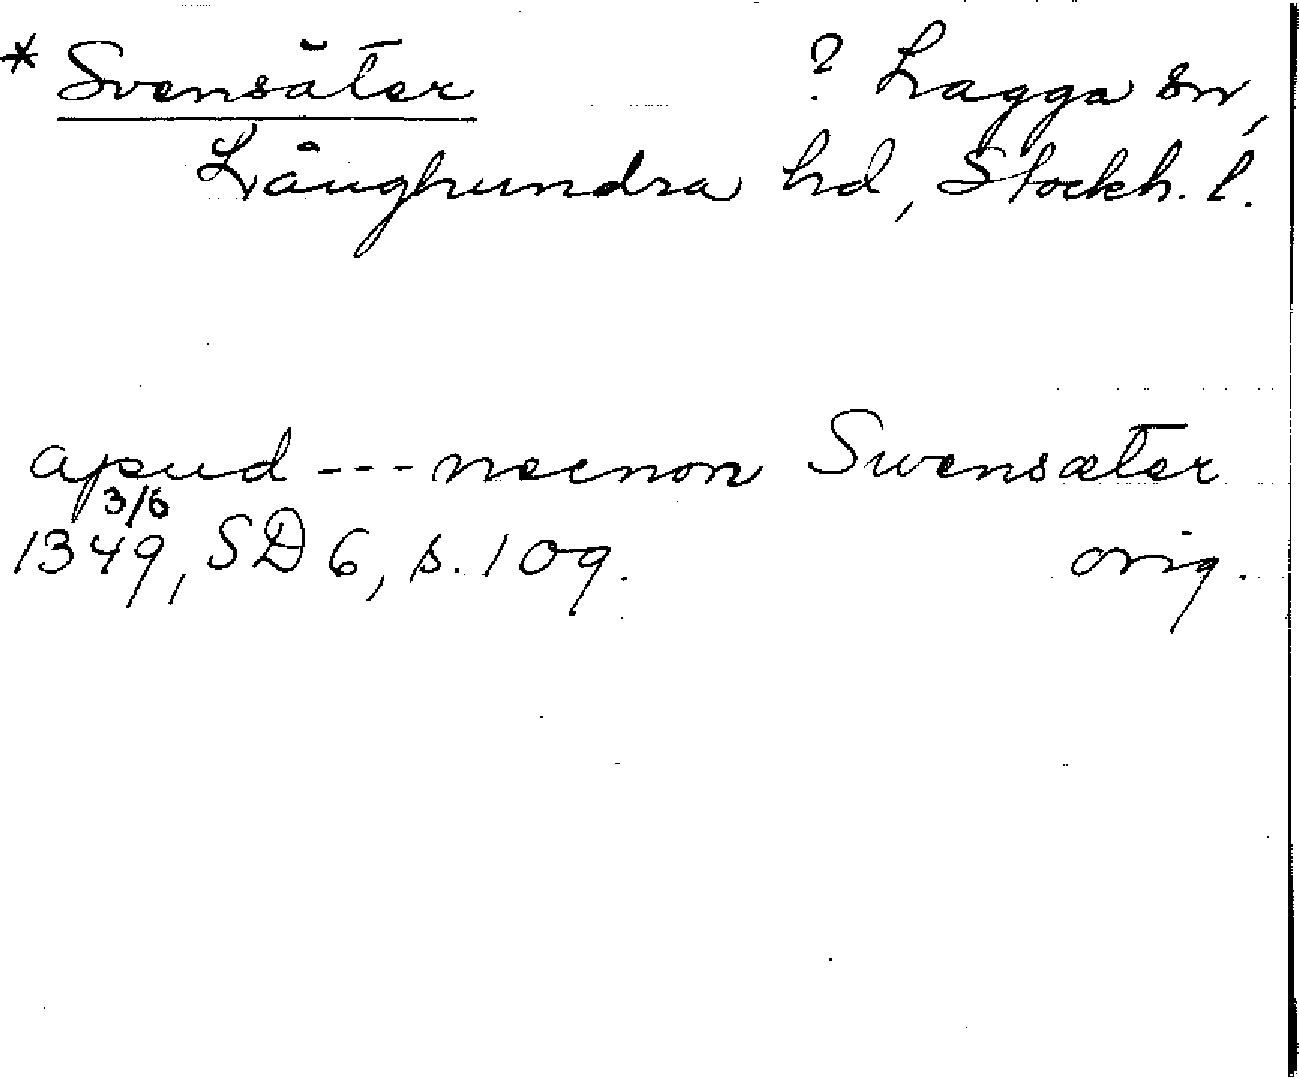 * Svensäter ? Lagga sn,
Långhundra hd, Stockh. l.
apud --- necnon Swensæter
3/6
1349, SD 6, s. 109. orig.